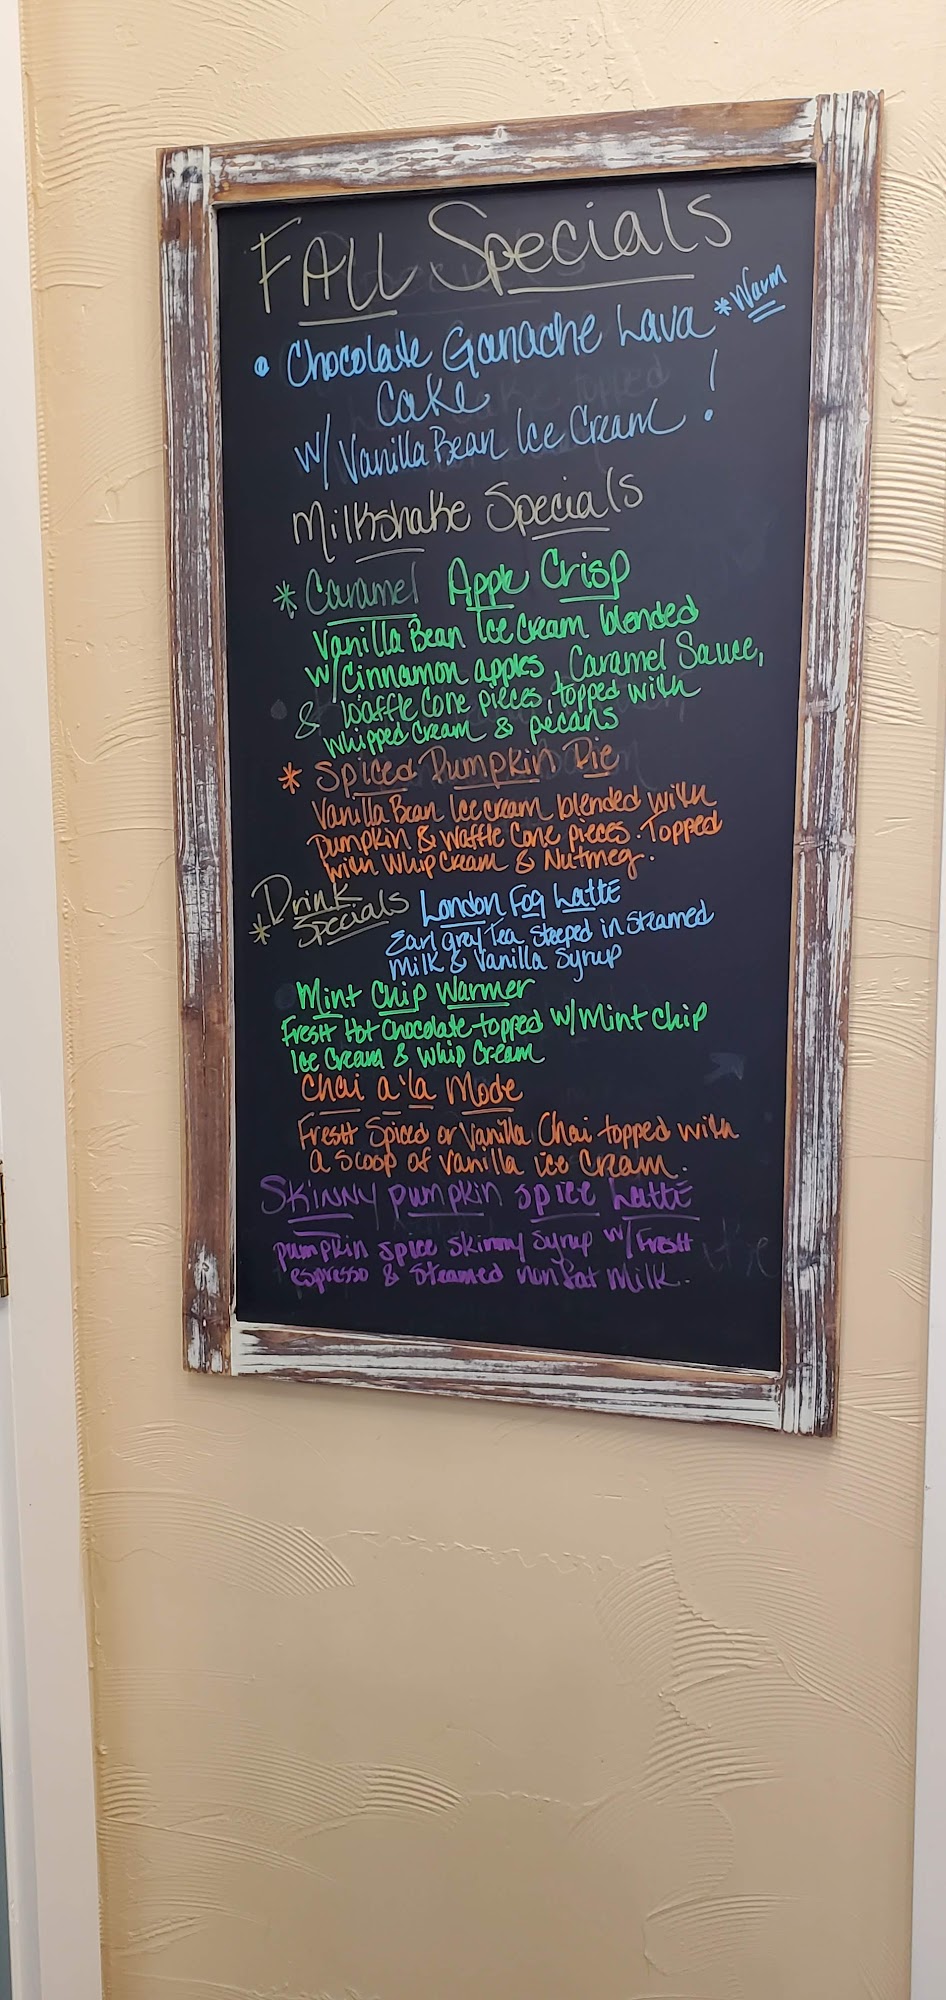 Fall Specials
• Chocolate Ganache Lava *Warm
Cake
w/ Vanilla Bean Ice Cream !
Milkshake Specials
* Caramel Apple Crisp
Vanilla Bean Ice Cream blended
w/ Cinnamon apples, Caramel Sauce,
& Waffle Cone pieces, topped with
whipped cream & pecans
* Spiced Pumpkin Pie
Vanilla Bean Ice cream blended with
Pumpkin & Waffle Cone pieces. Topped
with Whip Cream & Nutmeg.
* Drink Specials
London Fog Latte
Earl grey Tea steeped in steamed
milk & vanilla syrup
Mint Chip Warmer
Fresh Hot Chocolate topped w/ Mint Chip
Ice Cream & Whip Cream
Chai a'la Mode
Fresh Spiced or Vanilla Chai topped with
a scoop of vanilla ice cream.
Skinny pumpkin spice Latte
pumpkin spice skinny syrup w/ Fresh
espresso & steamed non fat milk.